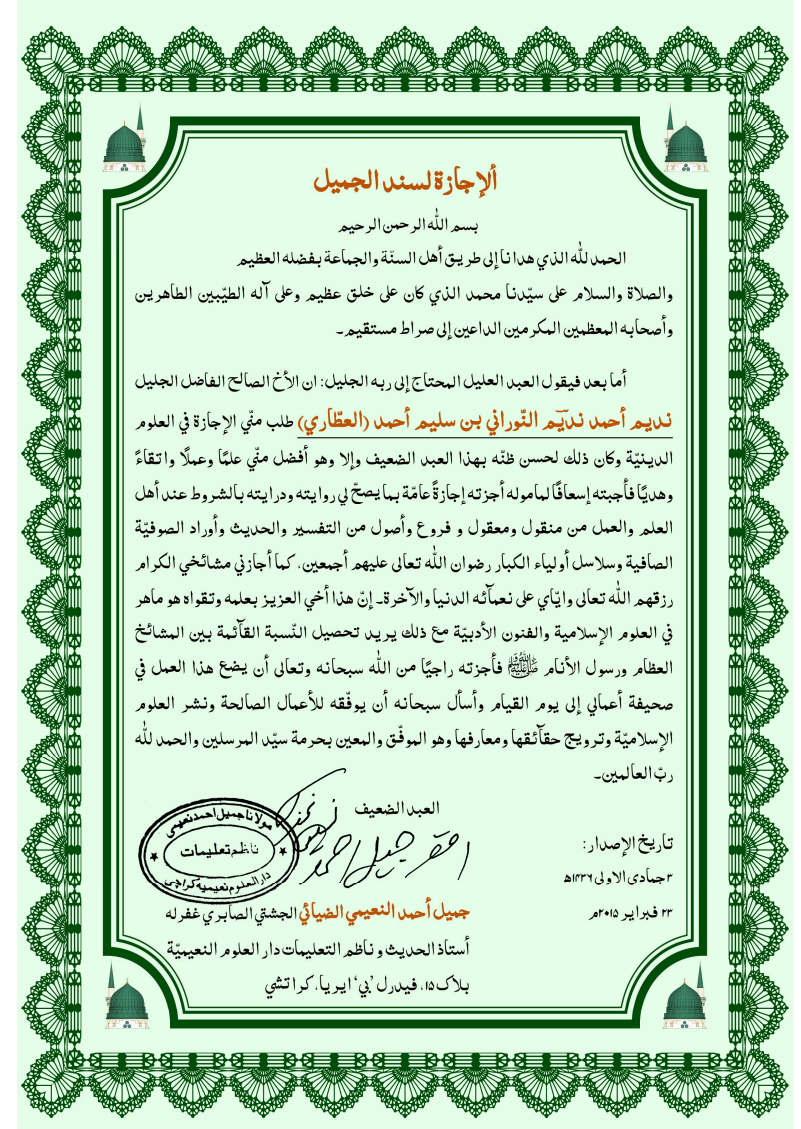 ألإجازة لسند الجميل
بسم الله الرحمن الرحيم
الحمد لله الذي هدانا إلى طريق أهل السنّة والجماعة بفضله العظيم
والصلاة والسلام على سيّدنا محمد الذي كان على خلق عظيم وعلى آله الطيّبين الطاهرين
وأصحابه المعظمين المكرمين الداعين إلى صراط مستقيم۔
أما بعد فيقول العبد العليل المحتاج إلى ربه الجليل: ان الأخ الصالح الفاضل الجليل
نديم أحمد نديؔم النّوراني بن سليم أحمد (العطّاري) طلب منّي الإجازة في العلوم
الدينيّة وكان ذلك لحسن ظنّه بهذا العبد الضعيف وإلا وهو أفضل منّي علمًا وعملًا واتقاءً
وهديًا فأجبته إسعافًا لماموله أجزته إجازةً عامّة بما يصحّ لي روايته ودرايته بالشروط عند أهل
العلم والعمل من منقول ومعقول و فروع وأصول من التفسير والحديث وأوراد الصوفيّة
الصافية وسلاسل أولياء الكبار رضوان الله تعالى عليهم أجمعين، كما أجازني مشائخي الكرام
رزقهم الله تعالى وايّاي على نعمآئه الدنيا والآخرة۔ إنّ هذا أخي العزيز بعلمه وتقواه هو ماهر
في العلوم الإسلامية والفنون الأدبيّة مع ذلك يريد تحصيل النّسبة القآئمة بين المشائخ
العظام ورسول الأنام ﷺ فأجزته راجيًا من الله سبحانه وتعالى أن يضع هذا العمل في
صحيفة أعمالي إلى يوم القيام وأسأل سبحانه أن يوفّقه للأعمال الصالحة ونشر العلوم
الإسلاميّة وترويج حقآئقها ومعارفها وهو الموفّق والمعين بحرمة سيّد المرسلين والحمد لله
ربّ العالمين۔
العبد الضعيف
مولانا جميل احمد نعيمى
ناظم تعليمات
دار العلوم نعيميه كراچى
احقر جميل احمد نعيمى
تاريخ الإصدار:
۳ جمادى الاولى ۱۴۳۶ھ
۲۳ فبراير ۲۰۱۵م
جميل أحمد النعيمي الضيائي الجشتي الصابري غفرله
أستاذ الحديث و ناظم التعليمات دار العلوم النعيميّة
بلاک ۱۵، فيدرل ’بي‘ ايريا، كراتشي